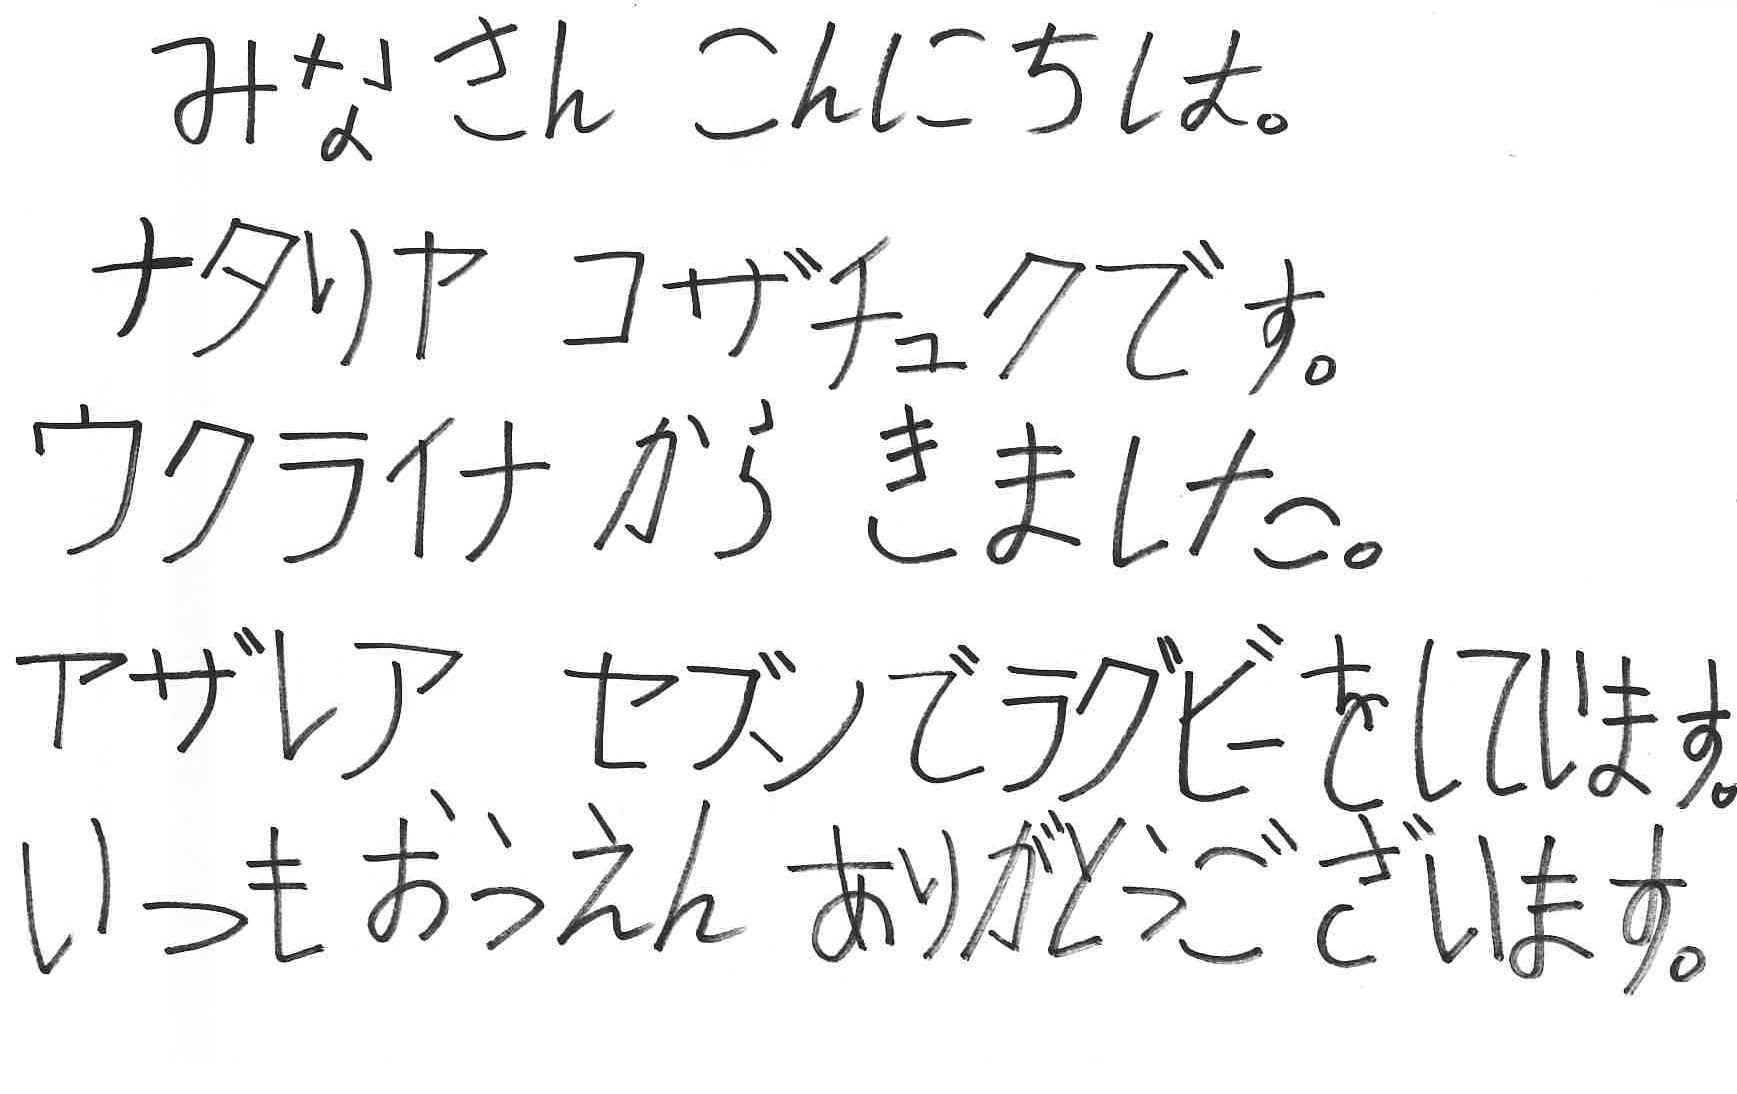 みなさん こんにちは。
ナタリヤ コザチュクです。
ウクライナから きました。
アザレア セブンでラグビーをしています。
いつもおうえん ありがとうございます。